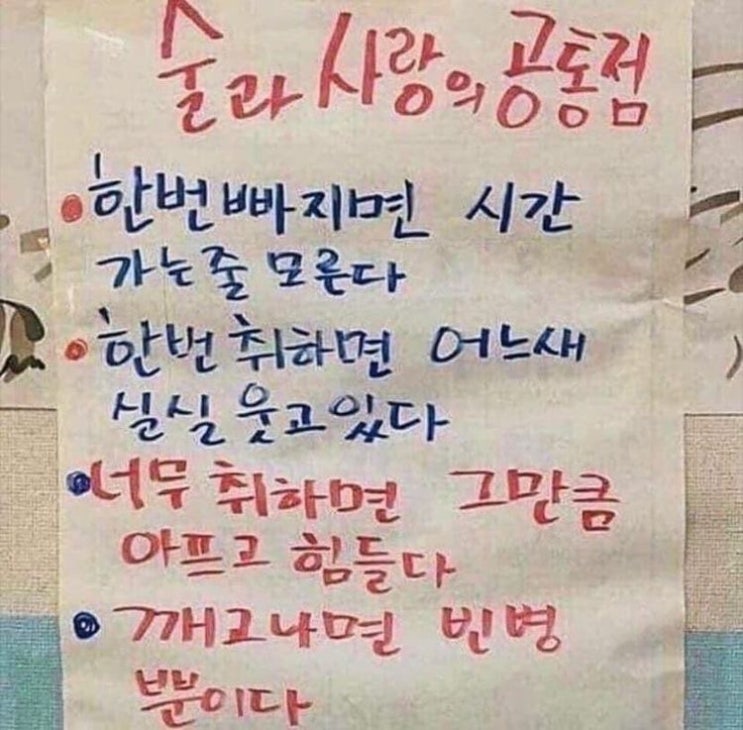 술과 사랑의 공통점
•한번 빠지면 시간
가는줄 모른다
•한번 취하면 어느새
실실 웃고있다
•너무 취하면 그만큼
아프고 힘들다
• 깨고나면 빈병
뿐이다